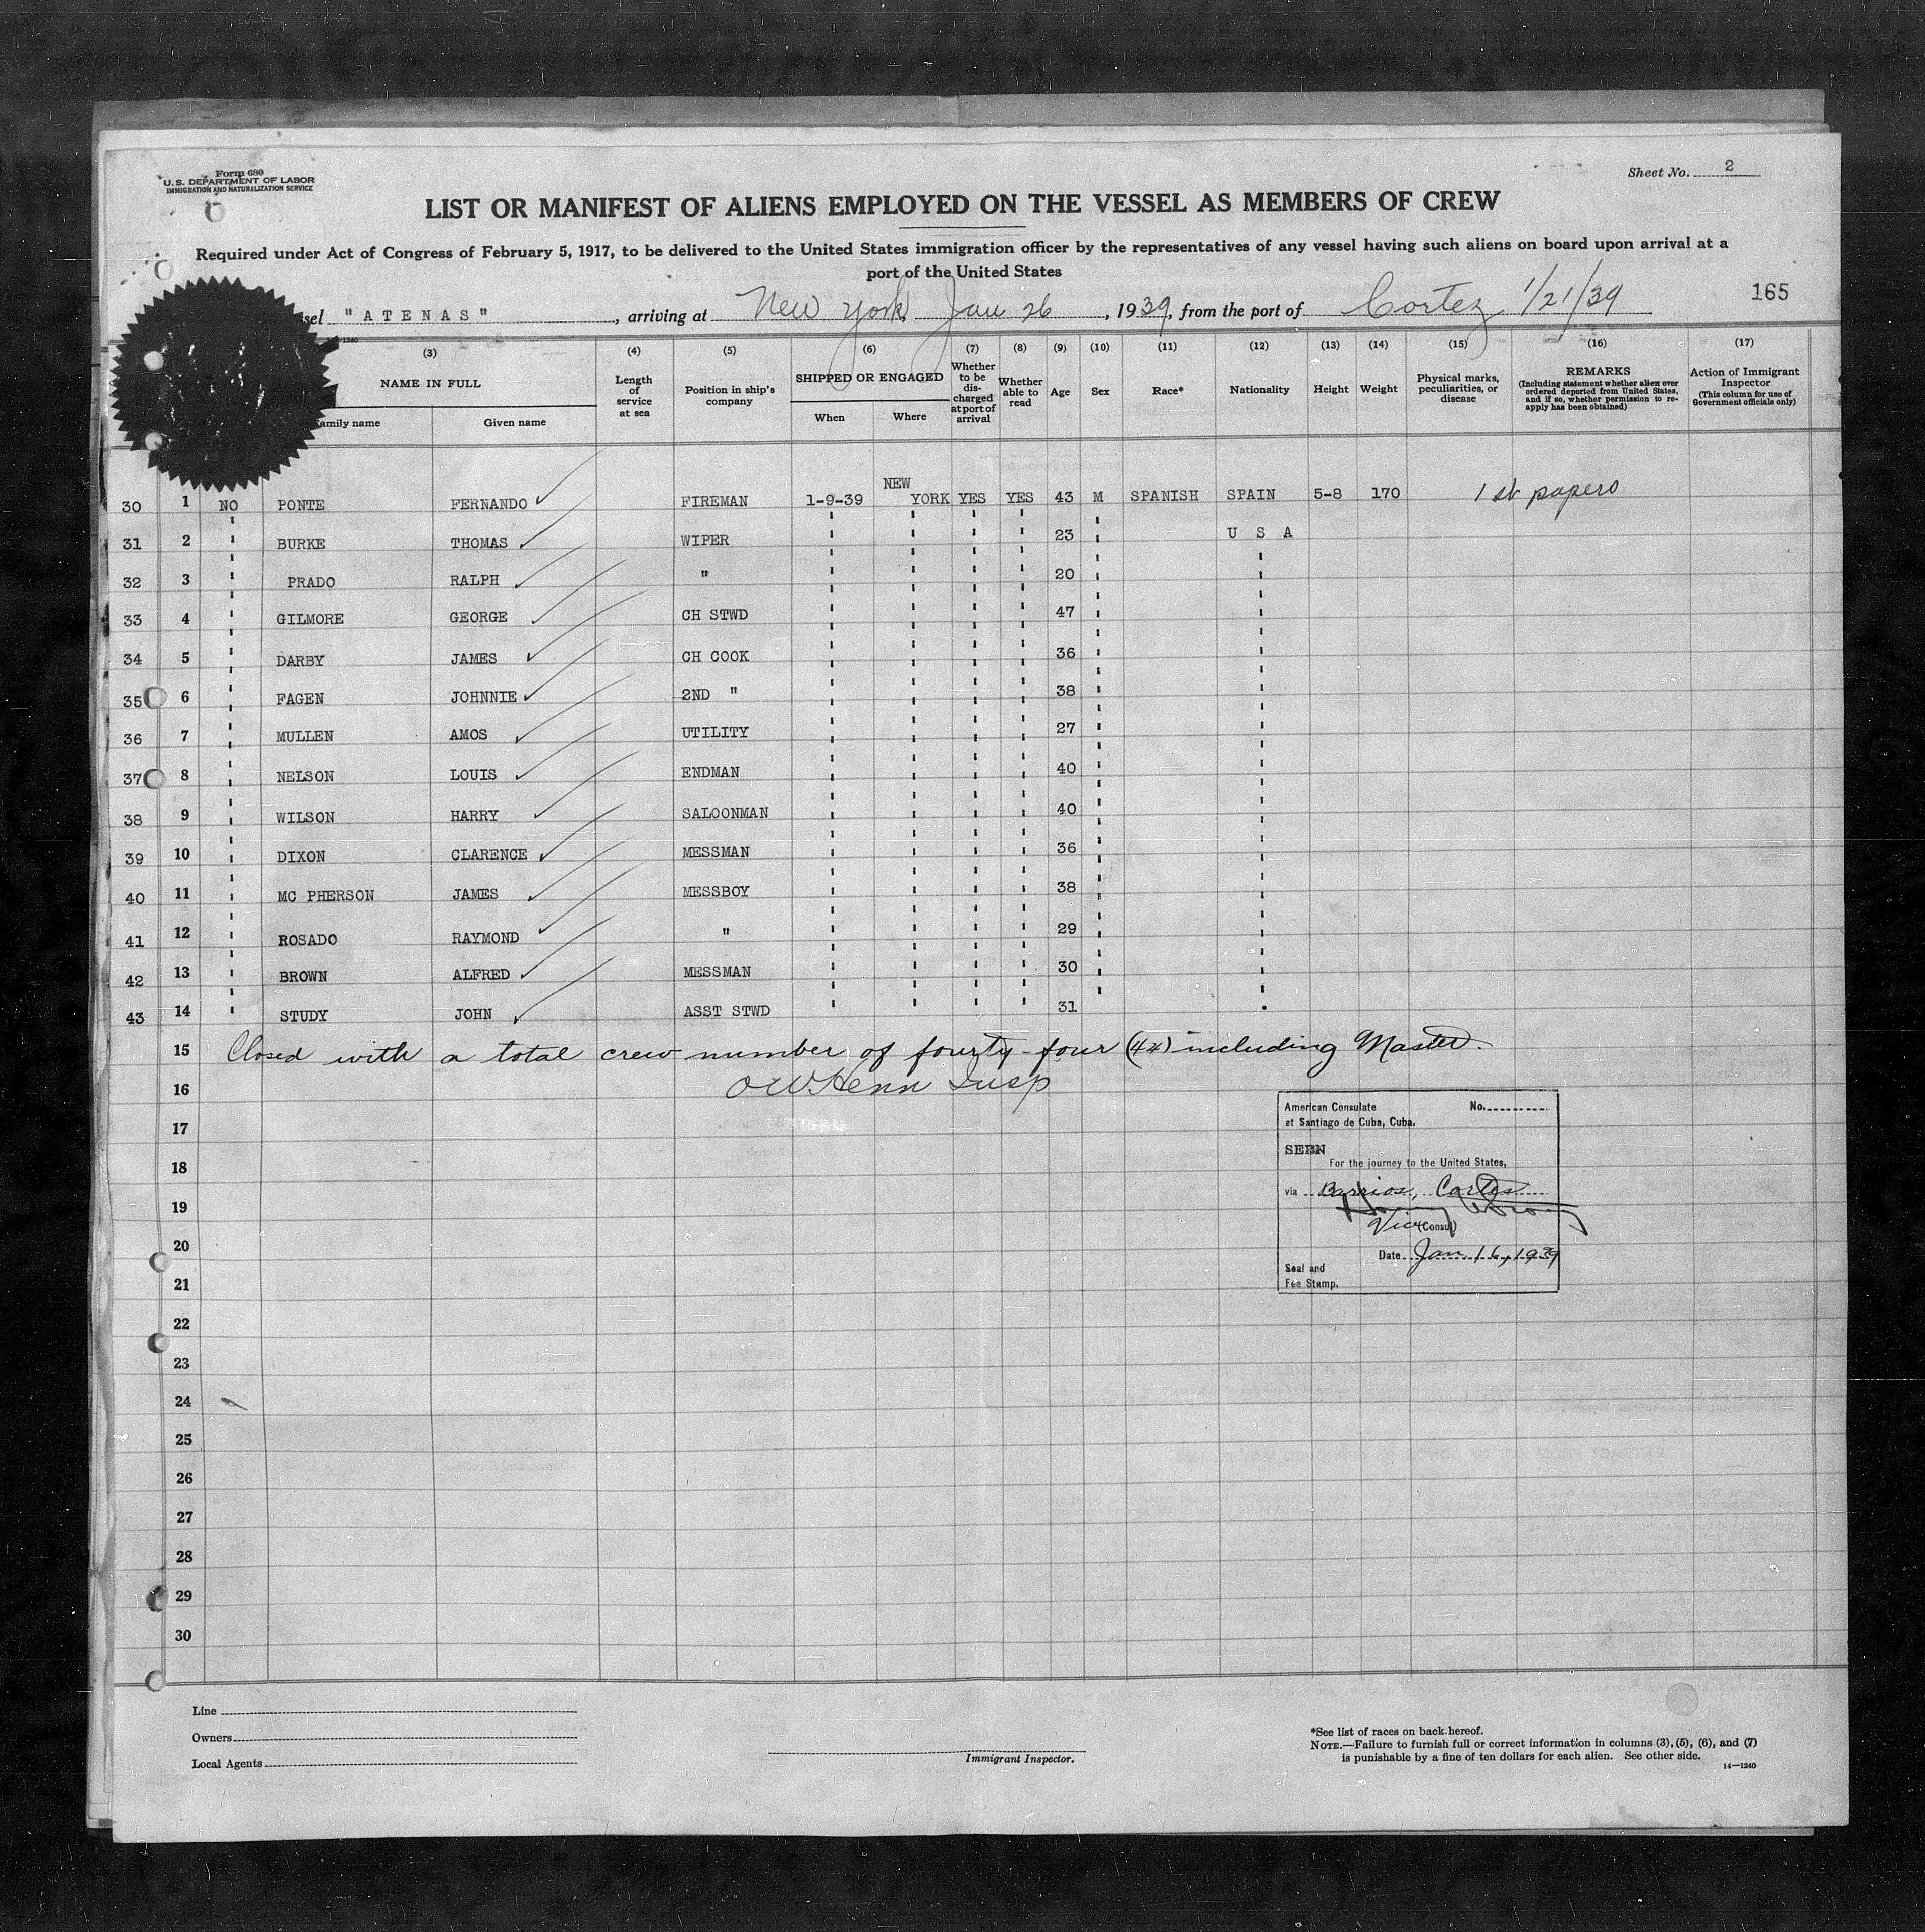 Form 680
U.S. DEPARTMENT OF LABOR
IMMIGRATION AND NATURALIZATION SERVICE
Sheet No. 2
LIST OR MANIFEST OF ALIENS EMPLOYED ON THE VESSEL AS MEMBERS OF CREW
Required under Act of Congress of February 5, 1917, to be delivered to the United States immigration officer by the representatives of any vessel having such aliens on board upon arrival at a
port of the United States
165
sel "ATENAS", arriving at New York, Jan 26, 1939, from the port of Cortez 1/21/39
(3) (4) (5) (6) (7) (8) (9) (10) (11) (12) (13) (14) (15) (16) (17)
NAME IN FULL
Family name Given name
Length of service at sea
Position in ship's company
SHIPPED OR ENGAGED
When Where
Whether to be discharged at port of arrival
Whether able to read
Age
Sex
Race*
Nationality
Height
Weight
Physical marks, peculiarities, or disease
REMARKS
(Including statement whether alien ever ordered deported from United States, and if so, whether permission to reapply has been obtained)
Action of Immigrant Inspector
(This column for use of Government officials only)
30 1 NO PONTE FERNANDO FIREMAN 1-9-39 NEW YORK YES YES 43 M SPANISH SPAIN 5-8 170 1st papers
31 2 " BURKE THOMAS WIPER " " " " 23 " U S A
32 3 " PRADO RALPH " " " " " 20 " "
33 4 " GILMORE GEORGE CH STWD " " " " 47 " "
34 5 " DARBY JAMES CH COOK " " " " 36 " "
35 6 " FAGEN JOHNNIE 2ND " " " " " 38 " "
36 7 " MULLEN AMOS UTILITY " " " " 27 " "
37 8 " NELSON LOUIS ENDMAN " " " " 40 " "
38 9 " WILSON HARRY SALOONMAN " " " " 40 " "
39 10 " DIXON CLARENCE MESSMAN " " " " 36 " "
40 11 " MC PHERSON JAMES MESSBOY " " " " 38 " "
41 12 " ROSADO RAYMOND " " " " " 29 " "
42 13 " BROWN ALFRED MESSMAN " " " " 30 " "
43 14 " STUDY JOHN ASST STWD " " " " 31 " "
15 Closed with a total crew number of fourty-four (44) including Master.
16 O W Henn Insp
17
18
19
20
21
22
23
24
25
26
27
28
29
30
American Consulate No.
at Santiago de Cuba, Cuba.
SEEN
For the journey to the United States,
via Barrios, Cortes
Vice (Consul)
Date Jan. 16, 1939
Seal and
Fee Stamp.
Line
Owners
Local Agents
Immigrant Inspector.
*See list of races on back hereof.
NOTE.—Failure to furnish full or correct information in columns (3), (5), (6), and (7)
is punishable by a fine of ten dollars for each alien. See other side.
14—1240